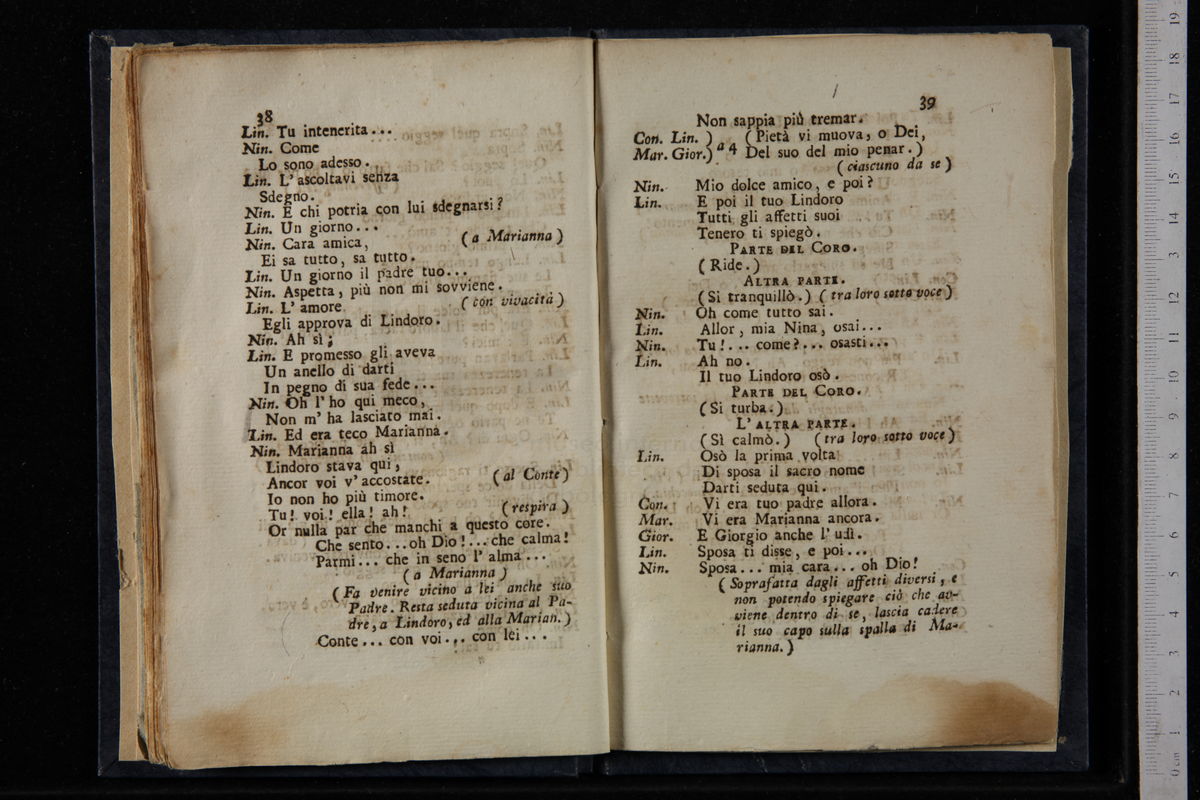 38
Lin. Tu intenerita...
Nin. Come
Lo sono adesso.
Lin. L'ascoltavi senza
Sdegno.
Nin. E chi potria con lui sdegnarsi?
Lin. Un giorno...
Nin. Cara amica, (a Marianna)
Ei sa tutto, sa tutto.
Lin. Un giorno il padre tuo...
Nin. Aspetta, più non mi sovviene.
Lin. L'amore (con vivacità)
Egli approva di Lindoro.
Nin. Ah sì;
Lin. E promesso gli aveva
Un anello di darti
In pegno di sua fede...
Nin. Oh l'ho qui meco,
Non m'ha lasciato mai.
Lin. Ed era teco Marianna.
Nin. Marianna ah sì
Lindoro stava qui,
Ancor voi v'accostate. (al Conte)
Io non ho più timore.
Tu! voi! ella! ah! (respira)
Or nulla par che manchi a questo core.
Che sento...oh Dio!...che calma!
Parmi... che in seno l'alma...
(a Marianna)
(Fa venire vicino a lei anche suo
Padre. Resta seduta vicina al Pa-
dre, a Lindoro, ed alla Marian.)
Conte... con voi... con lei...
39
Non sappia più tremar.
Con. Lin. ) (Pietà vi muova, o Dei,
Mar. Gior.) a 4 Del suo del mio penar.)
(ciascuno da se)
Nin. Mio dolce amico, e poi?
Lin. E poi il tuo Lindoro
Tutti gli affetti suoi
Tenero ti spiegò.
PARTE DEL CORO.
(Ride.)
ALTRA PARTE.
(Si tranquillò.) (tra loro sotto voce)
Nin. Oh come tutto sai.
Lin. Allor, mia Nina, osai...
Nin. Tu!... come?... osasti...
Lin. Ah no.
Il tuo Lindoro osò.
PARTE DEL CORO.
(Si turba.)
L'ALTRA PARTE.
(Sì calmò.) (tra loro sotto voce)
Lin. Osò la prima volta
Di sposa il sacro nome
Darti seduta qui.
Con. Vi era tuo padre allora.
Mar. Vi era Marianna ancora.
Gior. E Giorgio anche l'udì.
Lin. Sposa ti disse, e poi...
Nin. Sposa... mia cara... oh Dio!
(Soprafatta dagli affetti diversi, e
non potendo spiegare ciò che av-
viene dentro di se, lascia cadere
il suo capo sulla spalla di Ma-
rianna.)
0 cm 1 2 3 4 5 6 7 8 9 10 11 12 13 14 15 16 17 18 19